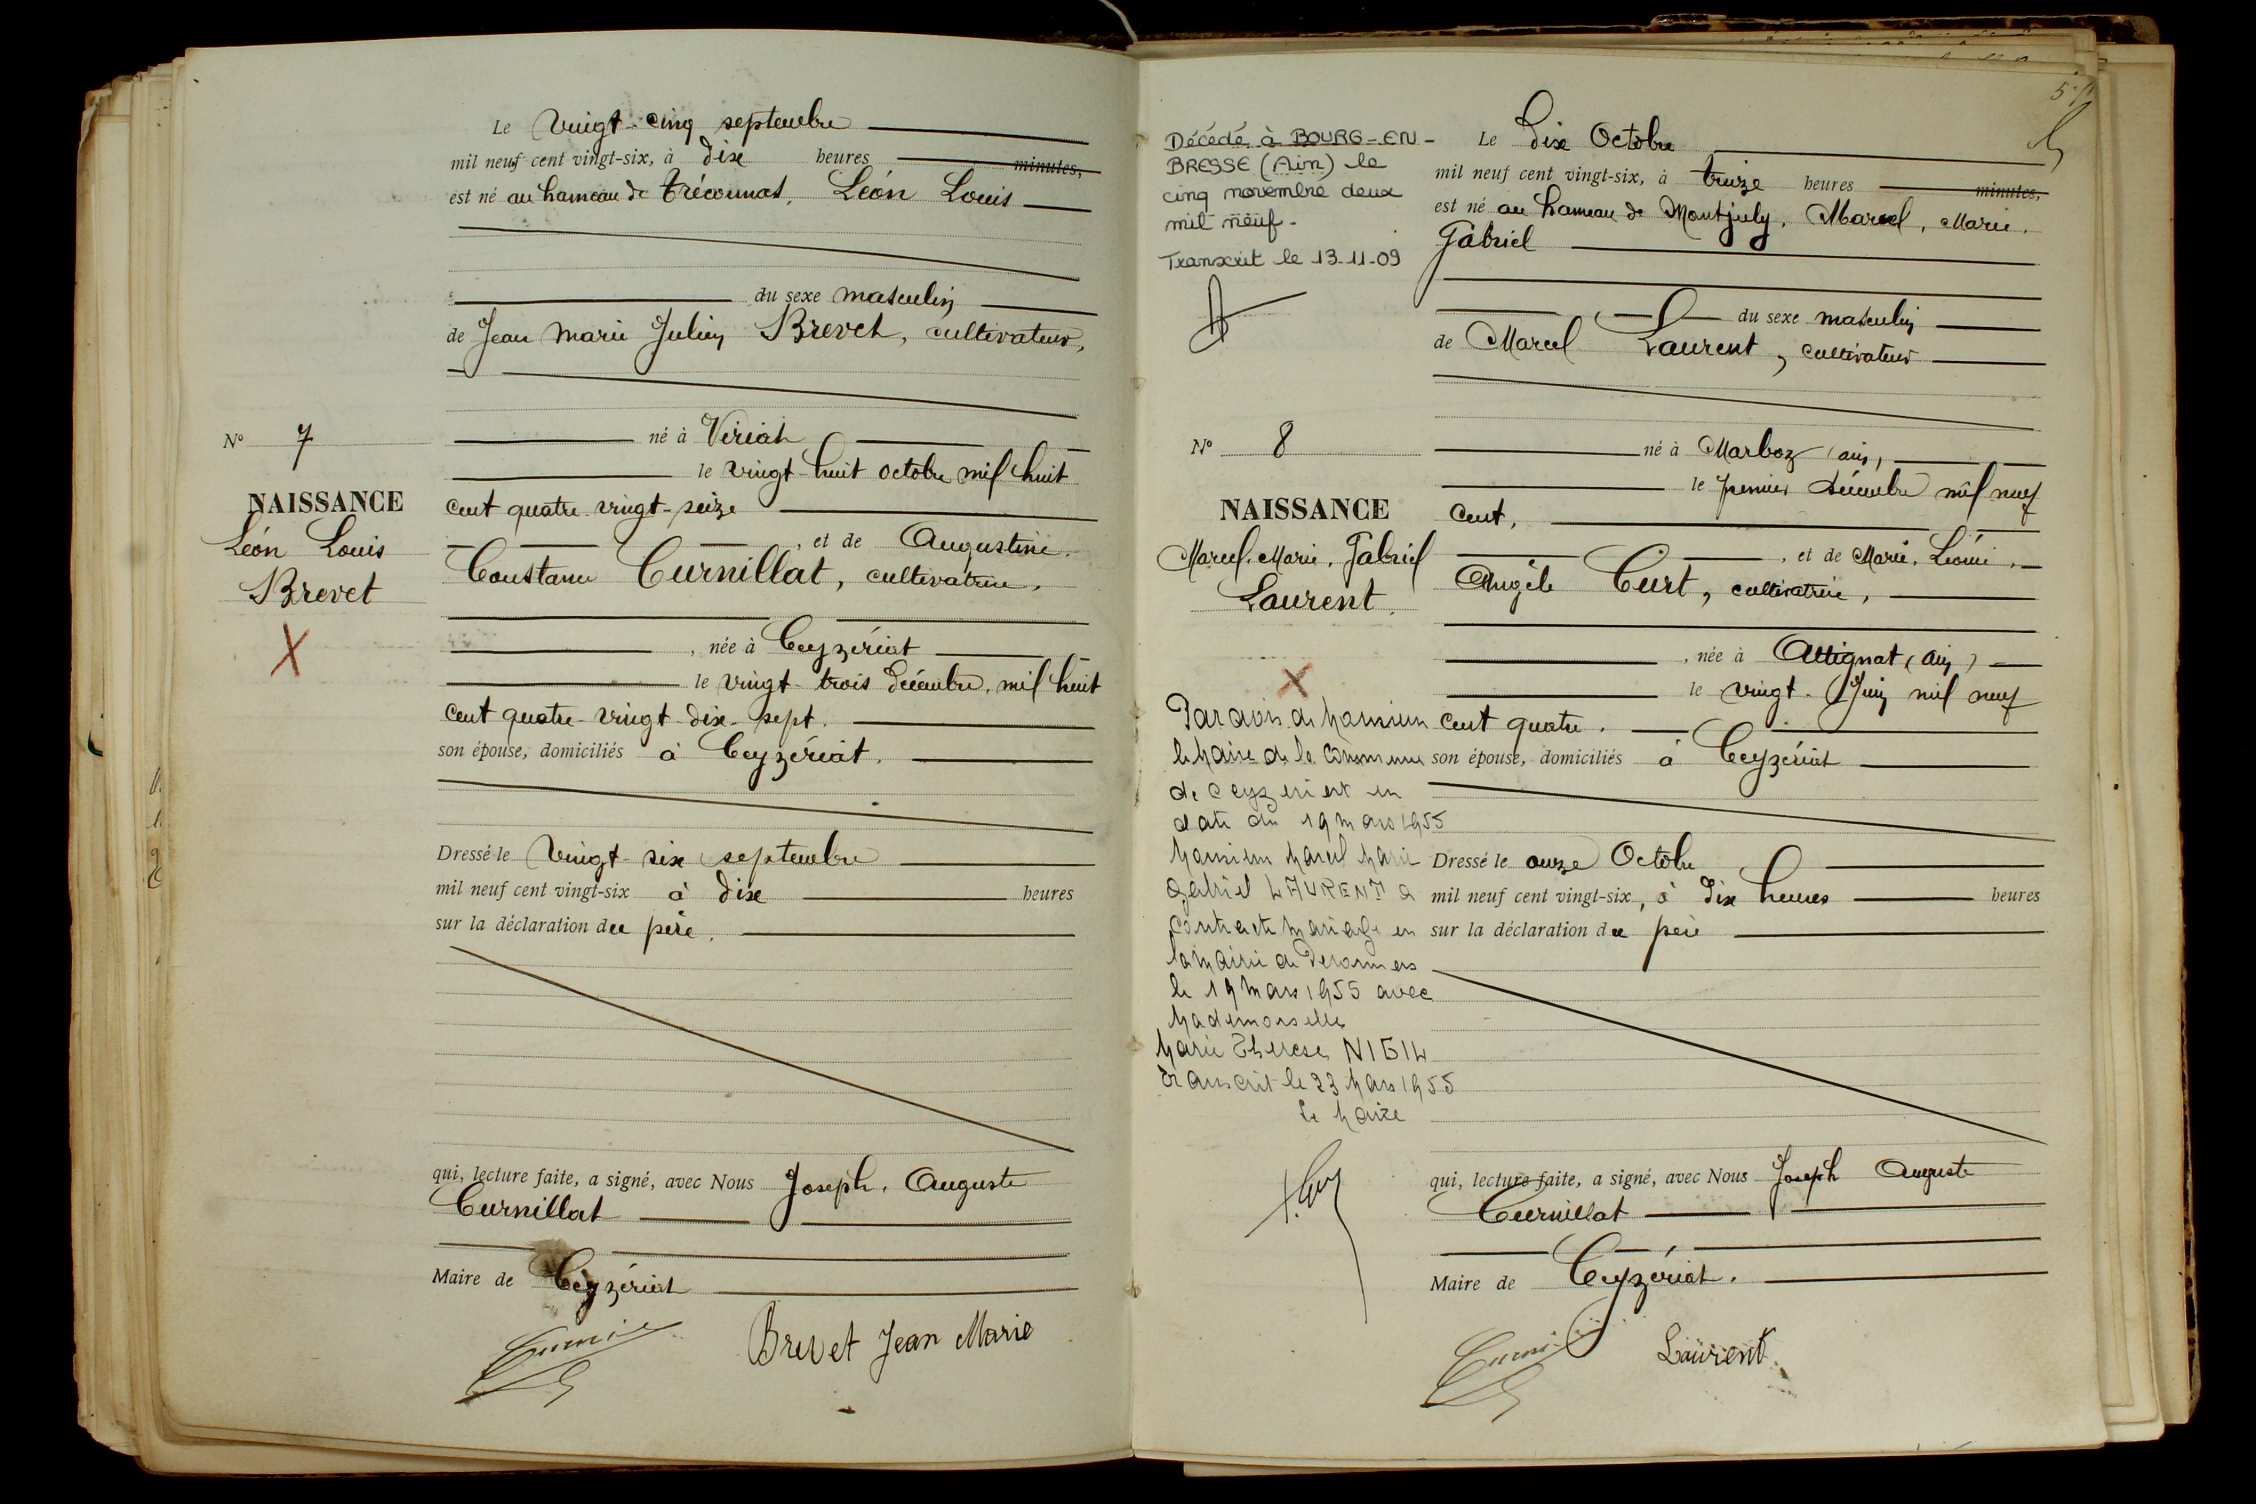 Le Vingt-cinq septembre
mil neuf cent vingt-six, à dix heures minutes,
est né au hameau de Trécounas, Léon Louis
du sexe masculin
de Jean Marie Julien Brevet, cultivateur,
né à Viriat
le vingt-huit octobre mil huit
cent quatre-vingt-seize
, et de Augustine
Constance Curnillat, cultivatrice,
, née à Ceyzériat
le vingt-trois décembre, mil huit
cent quatre-vingt-dix-sept.
son épouse, domiciliés à Ceyzériat.
Dressé le Vingt-six septembre
mil neuf cent vingt-six à dix heures
sur la déclaration du père.
qui, lecture faite, a signé, avec Nous Joseph, Auguste
Curnillat
Maire de Ceyzériat
Brevet Jean Marie
N° 7
NAISSANCE
Léon Louis
Brevet
X
5
Décédé à BOURG-EN-
BRESSE (Ain) le
cinq novembre deux
mil neuf.
Transcrit le 13-11-09
N° 8
NAISSANCE
Marcel, Marie, Gabriel
Laurent
X
Par avis de Monsieur
le Maire de la Commune
de Ceyzeriat en
date du 19 mars 1955
Monsieur Marcel Marie
Gabriel LAURENT a
contracté mariage en
la mairie de Peronnas
le 19 Mars 1955 avec
Mademoiselle
Marie Therese
Transcrit le 23 Mars 1955
Le Maire
Le Dix Octobre
mil neuf cent vingt-six, à treize heures minutes,
est né au hameau de Montjuly, Marcel, Marie,
Gabriel
du sexe masculin
de Marcel Laurent, cultivateur
né à Marboz (ain,
le premier décembre mil neuf
cent,
, et de Marie, Léonie,
Angèle Curt, cultivatrice,
, née à Attignat (ain)
le vingt Juin mil neuf
cent quatre.
son épouse, domiciliés à Ceyzériat
Dressé le onze Octobre
mil neuf cent vingt-six, à dix heures heures
sur la déclaration du père
qui, lecture faite, a signé, avec Nous Joseph Auguste
Curnillat
Maire de Ceyzériat.
Laurent